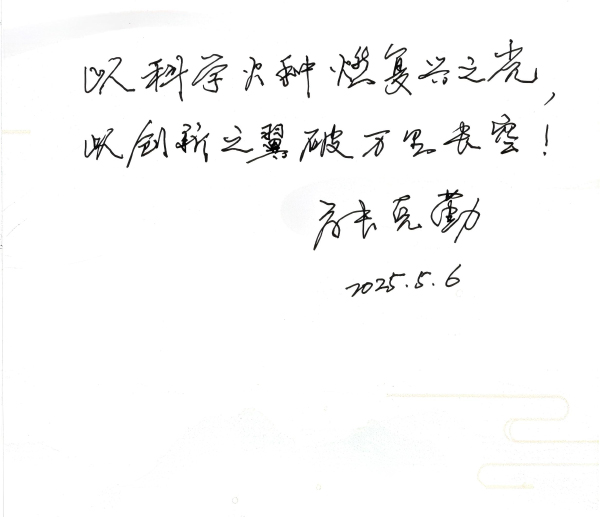 以科学火种燃复兴之光，
以创新之翼破万里长空！
房长克勤
2025.5.6